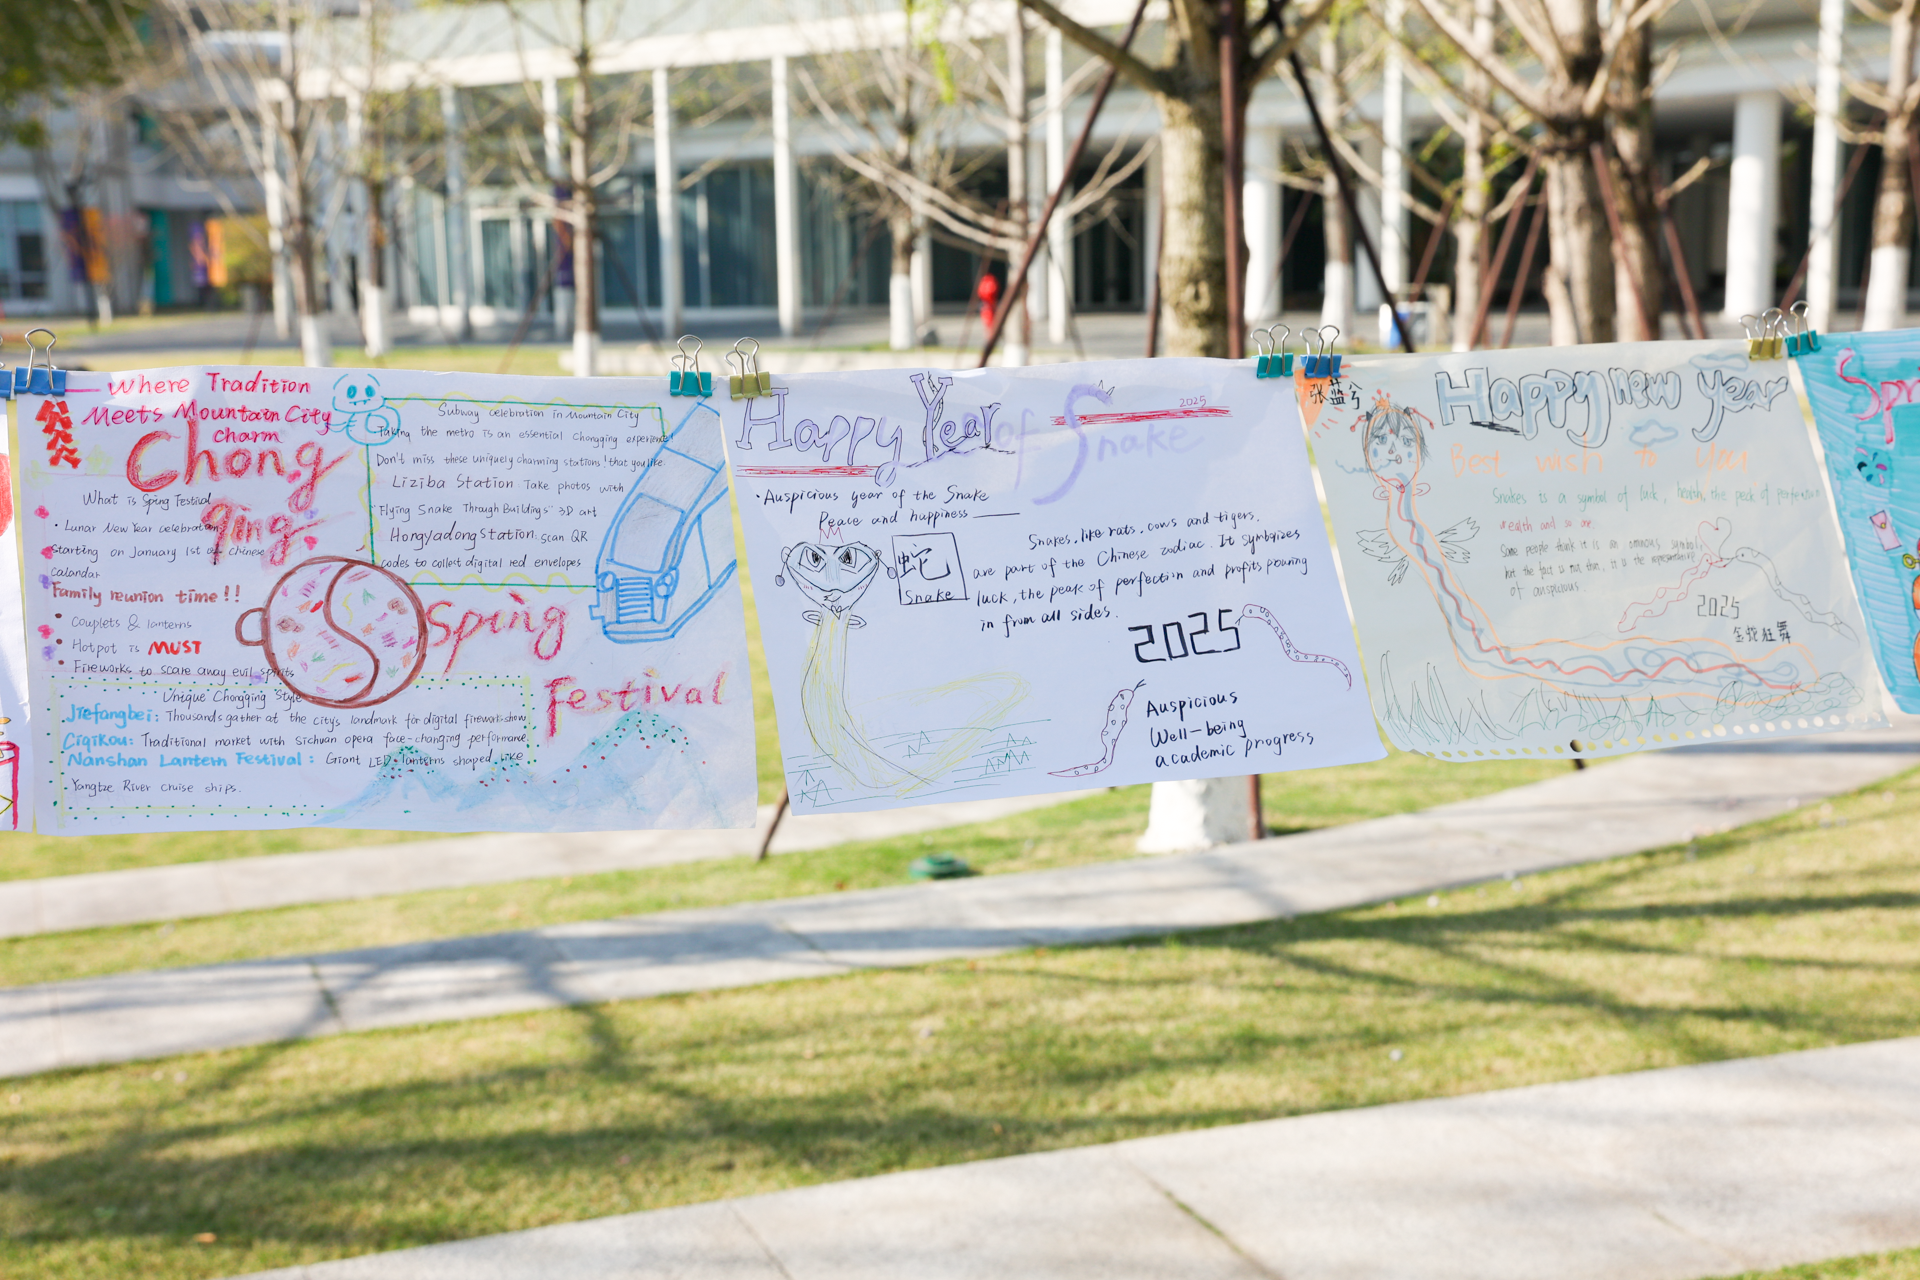 Where Tradition
Meets Mountain City
charm
Chong
qing
What is Sping Festival
• Lunar New Year celebration
starting on January 1st of Chinese
Calandar
Family reunion time!!
• Couplets & lanterns
• Hotpot is MUST
• Fireworks to scare away evil spirits
Subway celebration in Mountain City
Taking the metro is an essential Chongqing experience!
Don't miss these uniquely charming stations! that you like.
Liziba Station Take photos with
"Flying Snake Through Buildings" 3D art
Hongyadong Station: scan QR
codes to collect digital red envelopes
Sping
Festival
Unique Chongqing Style
Jiefangbei: Thousands gather at the city's landmark for digital firework show
Ciqikou: Traditional market with Sichuan opera face-changing performance.
Nanshan Lantern Festival: Giant LED lanterns shaped like
Yangtze River cruise ships.
Happy Year of Snake
2025
• Auspicious year of the Snake
Peace and happiness
蛇
Snake
Snakes, like rats, cows and tigers,
are part of the Chinese zodiac. It symbolizes
luck, the peak of perfection and profits pouring
in from all sides.
2025
Auspicious
Well-being
academic progress
张蓝兮
Happy new year
Best wish to you
Snakes is a symbol of luck, the peak of perfection
wealth and so on.
Some people think it is an ominous symbol,
but the fact is not that, it is the
of auspicious
2025
金蛇狂舞
Spr